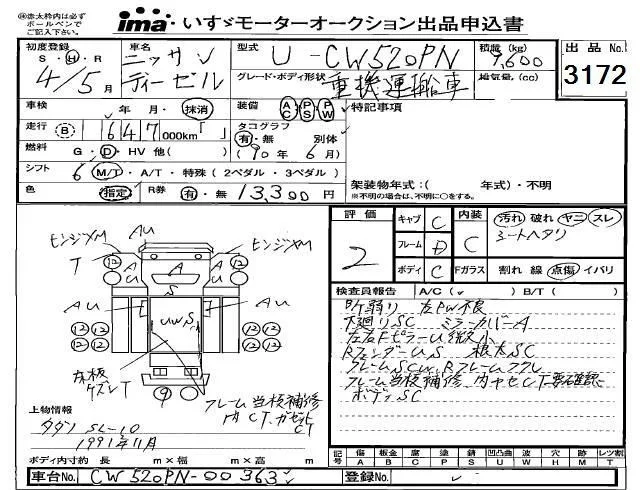 ㊟赤太枠内は必ず
ボールペンで
ご記入下さい。
ima・いすゞモーターオークション出品申込書
初度登録
S・H・R
4/5月
車名
ニッサン
ディーゼル
型式
U-CW520PN
グレード・ボディ形状
重機運輸車
積載(kg)
9,600
排気量(cc)
出品No.
3172
車検
年 月・抹消
装備 AC PS PW
特記事項
走行 B 1647 000km
タコグラフ
有・無 別体
(90年6月)
燃料 G・D・HV 他( )
シフト 6 M/T・A/T・特殊(2ペダル・3ペダル)
架装物年式:( 年式)・不明
※不明の場合は、不明に○をする。
色 指定 R券 有・無 13,300円
評価
2
キャブ C
フレーム D
ボディ C
内装 C
汚れ 破れ ヤニ スレ
シートヘタリ
Fガラス 割れ 線 点傷 イバリ
検査員報告 A/C( ) B/T( )
所弱り 左PW不良
下廻りSC ミラーカバーA
左右FピラーU微小
RフェンダーUS 根太SC
フレームSCW, Rフレームフクレ
フレーム当板補修 内ヤセCT要確認
ボデーSC
ヒンジXM
T
AU
A
U
S
UWS
12
9
床板
ケズレT
フレーム当板補修
内CT. ガゼット
CT
上物情報
タダノ SL-10
1991年11月
ボディ内寸約 長 m×幅 m×高 m
記号 傷 A 板金 B 腐 C 塗 P 錆 S 凹凸曲 U 波 W 穴 H 欠 M レツ割 T
車台No. CW520PN-00363
登録No.